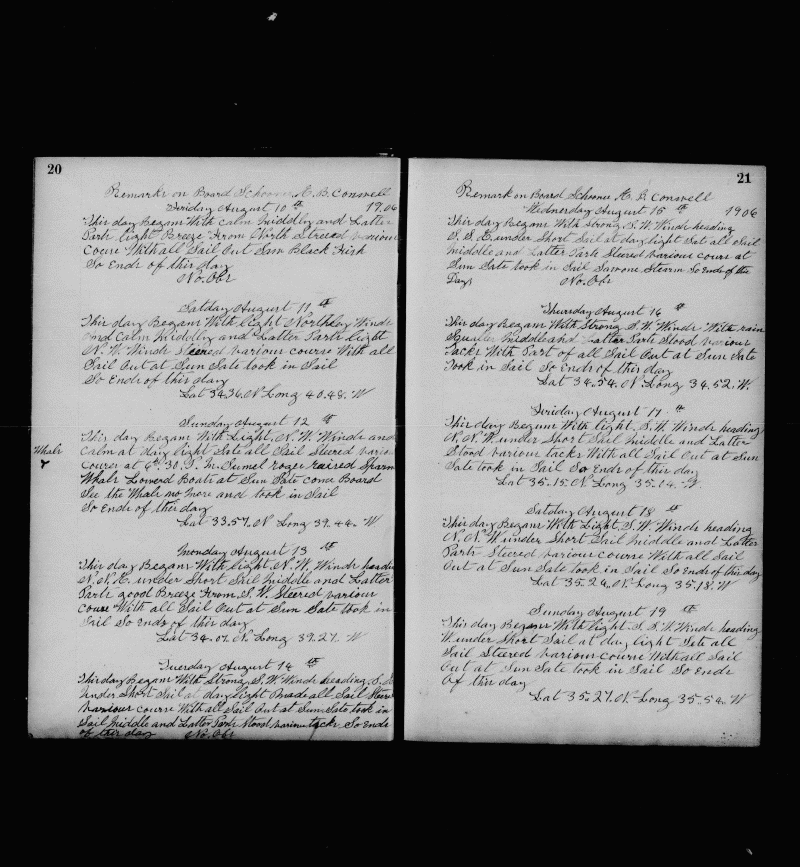 20
Remarks on Board Schooner A. B. Conwell
Friday August 10 th 1906
This day Begam With Calm Middly and Latter
Parts light Breeze From North Steered variour
Cource With all Sail Out Sun Black Fish
So Ends of this day
No. Obs
Satday August 11 th
This day Begam With light Northley Winds
and Calm Middly and Latter Parts light
N. W. Winds Steered variour course With all
Sail Out at Sun Sate took in Sail
So Ends of this day
Lat 34.36. N Long 40.48. W
Sunday August 12 th
This day Begam With Light, N. W. Winds and
Calm at day light Sate all Sail Steered variour
Whale
Courses at 6h.30. P. M. roger raired Sparm
Whale Lowered Boats at Sun Sate come Board
See the Whale no more and took in Sail
So Ends of this day
Lat 33.57. N Long 39.44. W
Monday August 13 th
This day Begam With light, N. W. Winds heading
N. N. E. under Short Sail Middle and Latter
Parts good Breeze From, S. W. Steered variour
Course With all Sail Out at Sun Sate took in
Sail So Ends of this day
Lat 34.07. N. Long 39.27. W
Tuerday August 14 th
This day Begam With Strong, S. W. Winds heading, S. E.
Under Short Sail at day light Made all Sail Steered
variour course With all Sail Out at Sun Sate took in
Sail Middle and Latter Parts Stood variour tacks, So Ends
of this day No. Obs
21
Remark on Board Schooner A. B. Conwell
Wednerday August 15 th 1906
This day Begam With Strong, S. W. Winds heading
S. S. E. under Short Sail at day light Sat all Sail
Middle and Latter Parts Steered variour course at
Sun Sate took in Sail Stearm So Ends of the
Day No. Obs
Thursday August 16 th
This day Begam With Strong, S. W. Winds With rain
Squalls Middle and Latter Parts Stood variour
Tacks With Part of all Sail Out at Sun Sate
Took in Sail So Ends of this day
Lat 34.54. N. Long 34.52. W
Friday August 17 th
This day Begum With light, S. W. Winds heading
N. N. W. under Short Sail Middle and Latter
Stood variour tacks With all Sail Out at Sun
Sate took in Sail So Ends of this day
Lat 35.15. N Long 35.14. W.
Satday August 18 th
This day Begam With Light, S. W. Winds heading
N. N. W under Short Sail Middle and Latter
Parts Steered variour course With all Sail
Out at Sun Sate took in Sail So Ends of this day
Lat 35.24. N. Long 35.18. W
Sunday August 19 th
This day Began With light, S. S. W. Winds heading
W. under Short Sail at day light Sate all
Sail Steered variour course With all Sail
Out at Sun Sate took in Sail So Ends
Of this day
Lat 35.27. N. Long 35.54. W